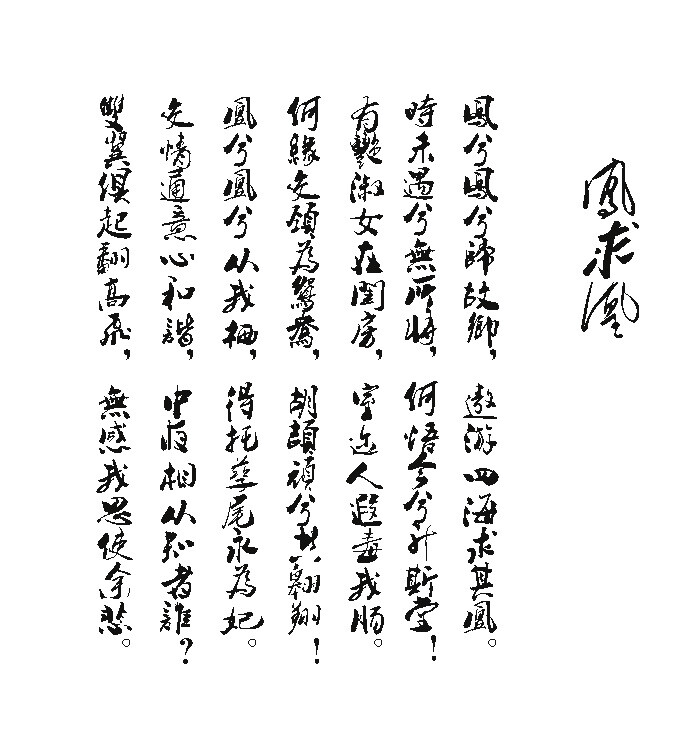 鳳求凰
鳳兮鳳兮歸故鄉，遨游四海求其凰。
時未遇兮無所將，何悟今兮升斯堂！
有艷淑女在閨房，室迩人遐毒我腸。
何緣交頸為鴛鴦，胡頡頏兮共翱翔！
凰兮凰兮从我栖，得托孳尾永為妃。
交情通意心和諧，中夜相从知者誰？
雙翼俱起翻高飛，無感我思使余悲。